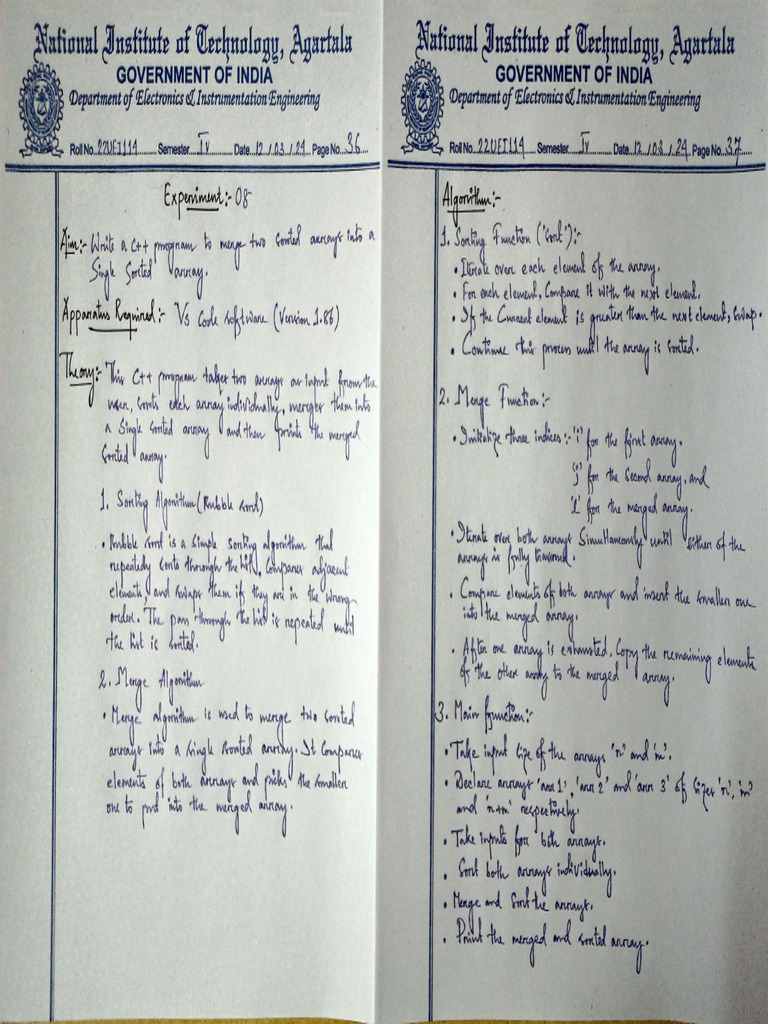 National Institute of Technology, Agartala
GOVERNMENT OF INDIA
Department of Electronics & Instrumentation Engineering
Roll No. 22UEI114 Semester IV Date 12/03/24 Page No. 36
Experiment:- 08
Aim:- Write a C++ program to merge two sorted arrays into a
Single Sorted array.
Apparatus Required:- VS Code software (Version 1.86)
Theory:- This C++ program takes two arrays as input from the
user, sorts each array individually, merges them into
a Single sorted array and then prints the merged
sorted array.
1. Sorting Algorithm (Bubble sort)
• Bubble sort is a simple sorting algorithm that
repeatedly sorts through the list, Compares adjacent
elements and swaps them if they are in the wrong
order. The pass through the list is repeated until
the list is sorted.
2. Merge Algorithm
• Merge algorithm is used to merge two sorted
arrays into a single sorted array. It Compares
elements of both arrays and picks the smaller
one to put into the merged array.
National Institute of Technology, Agartala
GOVERNMENT OF INDIA
Department of Electronics & Instrumentation Engineering
Roll No. 22UEI114 Semester IV Date 12/03/24 Page No. 37
Algorithm:-
1. Sorting Function ("sort"):-
• Iterate over each element of the array.
• For each element, Compare it with the next element.
• If the Current element is greater than the next element, swap.
• Continue this process until the array is sorted.
2. Merge Function:-
• Initialize three indices:- 'i' for the first array.
'j' for the second array, and
for the merged array.
• Iterate over both arrays Simultaneously until either of the
arrays is fully traversed.
• Compare elements of both arrays and insert the smaller one
into the merged array.
• After one array is exhausted, Copy the remaining elements
of the other array to the merged array.
3. Main function:-
• Take input size of the arrays 'n' and 'm'.
• Declare arrays 'arr 1', 'arr 2' and 'arr 3' of sizes 'n', 'm'
and 'n+m' respectively.
• Take inputs for both arrays.
• Sort both arrays individually.
• Merge and Sort the arrays.
• Print the merged and sorted array.